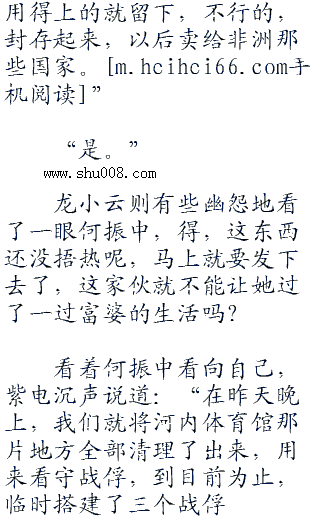 用得上的就留下，不行的，
封存起来，以后卖给非洲那
些国家。[m.hcihci66.com手
机阅读]”
“是。”
www.shu008.com
龙小云则有些幽怨地看
了一眼何振中，得，这东西
还没捂热呢，马上就要发下
去了，这家伙就不能让她过
了一过富婆的生活吗？
看着何振中看向自己，
紫电沉声说道：“在昨天晚
上，我们就将河内体育馆那
片地方全部清理了出来，用
来看守战俘，到目前为止，
临时搭建了三个战俘